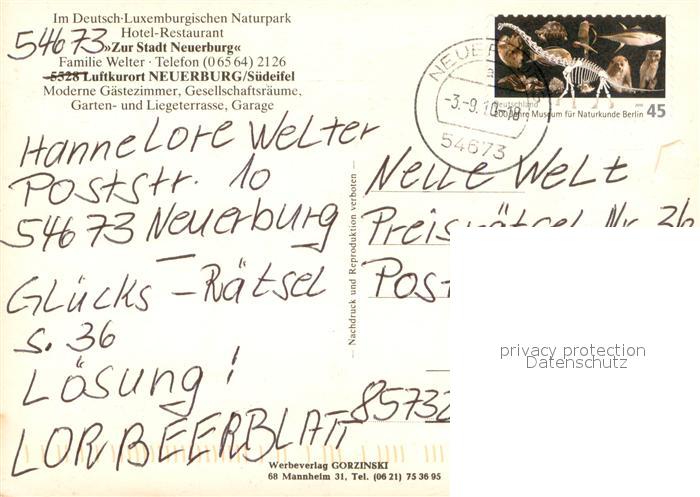 Im Deutsch-Luxemburgischen Naturpark
Hotel-Restaurant
54673 »Zur Stadt Neuerburg«
Familie Welter · Telefon (0 65 64) 21 26
5528 Luftkurort NEUERBURG/Südeifel
Moderne Gästezimmer, Gesellschaftsräume,
Garten- und Liegeterrasse, Garage
Hannelore Welter
Poststr. 10
54673 Neuerburg
Glücks-Rätsel
S. 36
Lösung!
LORBEERBLATT
— Nachdruck und Reproduktion verboten —
Werbeverlag GORZINSKI
68 Mannheim 31, Tel. (06 21) 75 36 95
-3.-9.10-18
54673
Deutschland
200 Jahre Museum für Naturkunde Berlin 45
Neue Welt
Preisrätsel Nr. 36
Post
85732
privacy protection
Datenschutz